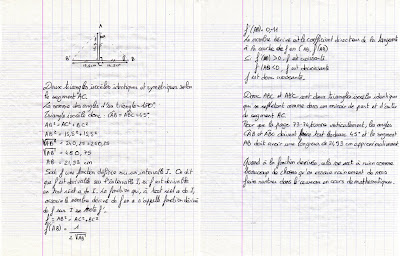 A
B
C
B'
Deux triangles isocèles identiques et symétriques selon
le segment AC.
La somme des angles d'un triangle = 180°
Triangle isocèle donc ABC = 45°
AB² = AC² + BC²
AB² = 15,5² + 15,5²
AB² = 240,25 + 240,25
AB² = 480,5
AB = 21,92 cm
Soit f une fonction définie sur un intervalle I. On dit
que f est dérivable sur l'intervalle I, si f est dérivable
en tout réel a de I. La fonction qui, à tout réel a de I,
associe le nombre dérivé de f en a s'appelle fonction dérivée
de f sur I se note f'.
f = AB² = AC² + BC²
f'(AB) = 1
2√AB
f'(AB) = 0,11
Le nombre dérivé est le coefficient directeur de la tangente
à la courbe de f en (AB, f(AB))
Si f'(AB) > 0, f est croissante
f'(AB) < 0, f est décroissante
f est donc croissante.
Donc ABC et AB'C sont deux triangles isocèles identiques
qui se reflètent comme dans un miroir de part et d'autre
du segment AC.
Pour que la page soit verticalement, les angles
CAB et ABC doivent tout 45° et le segment
AB doit avoir une longueur de approximativement
Quand à la fonction dérivée, elle ne sert à rien comme
beaucoup de choses qu'on essaye vainement de nous
faire rentrer dans le cerveau en cours de mathématiques.